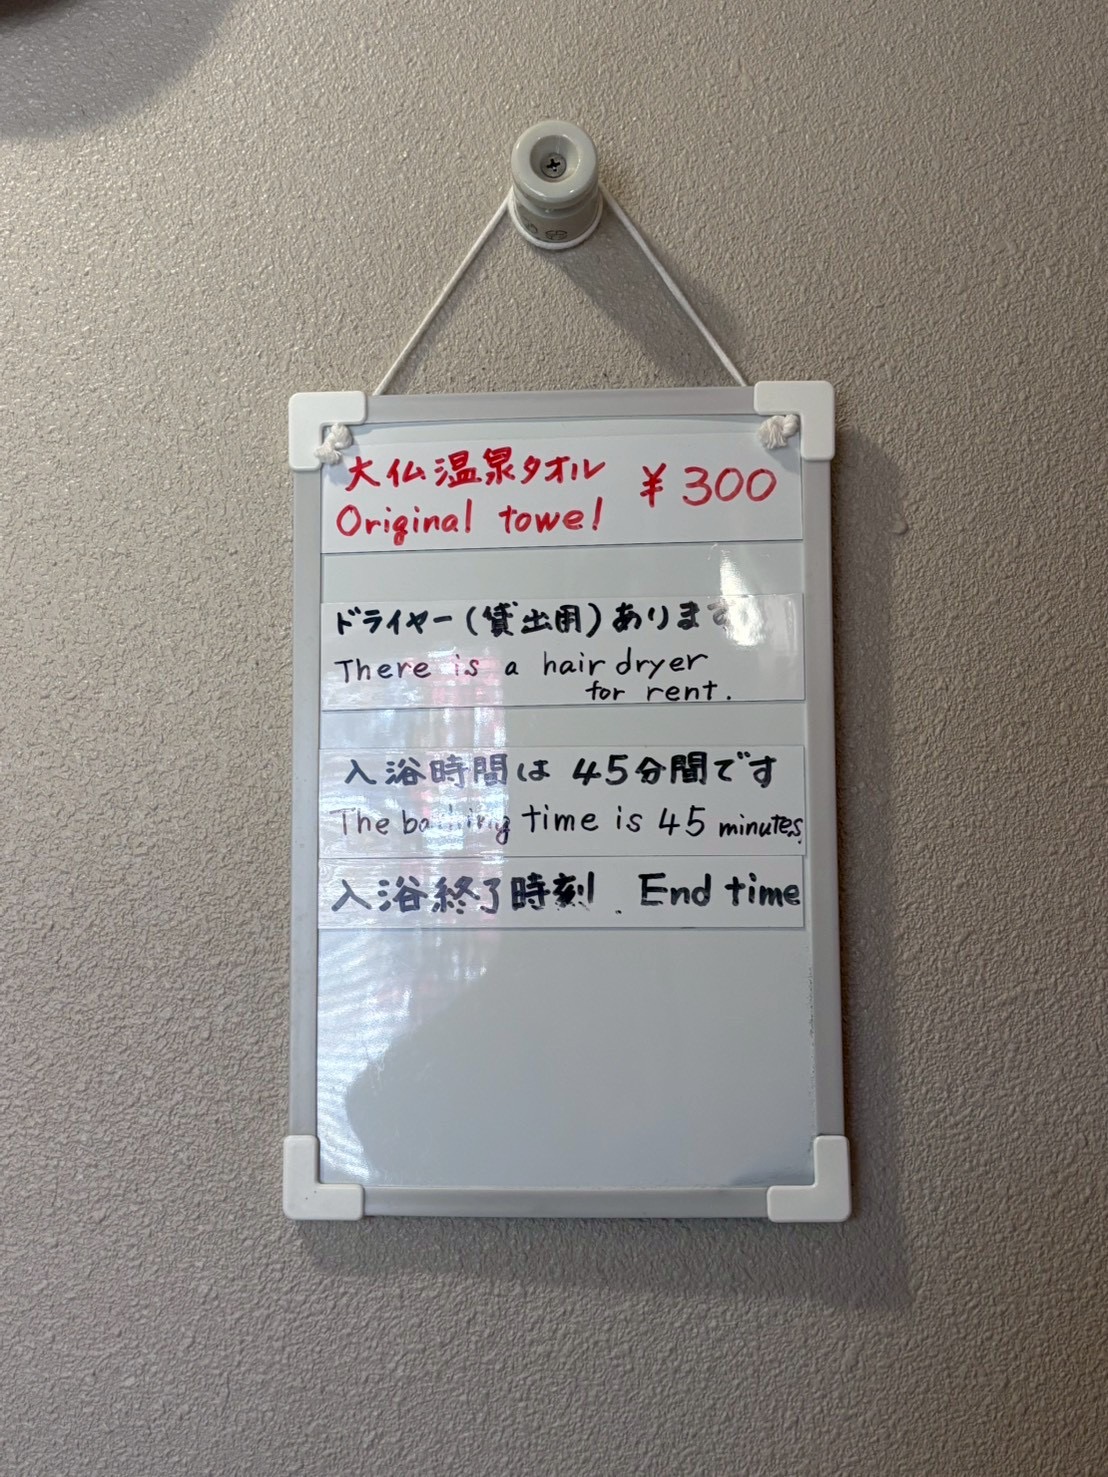 大仏温泉タオル ¥300
Original towel
ドライヤー(貸出用)あります
There is a hair dryer
for rent.
入浴時間は 45分間です
The bathing time is 45 minutes.
入浴終了時刻. End time